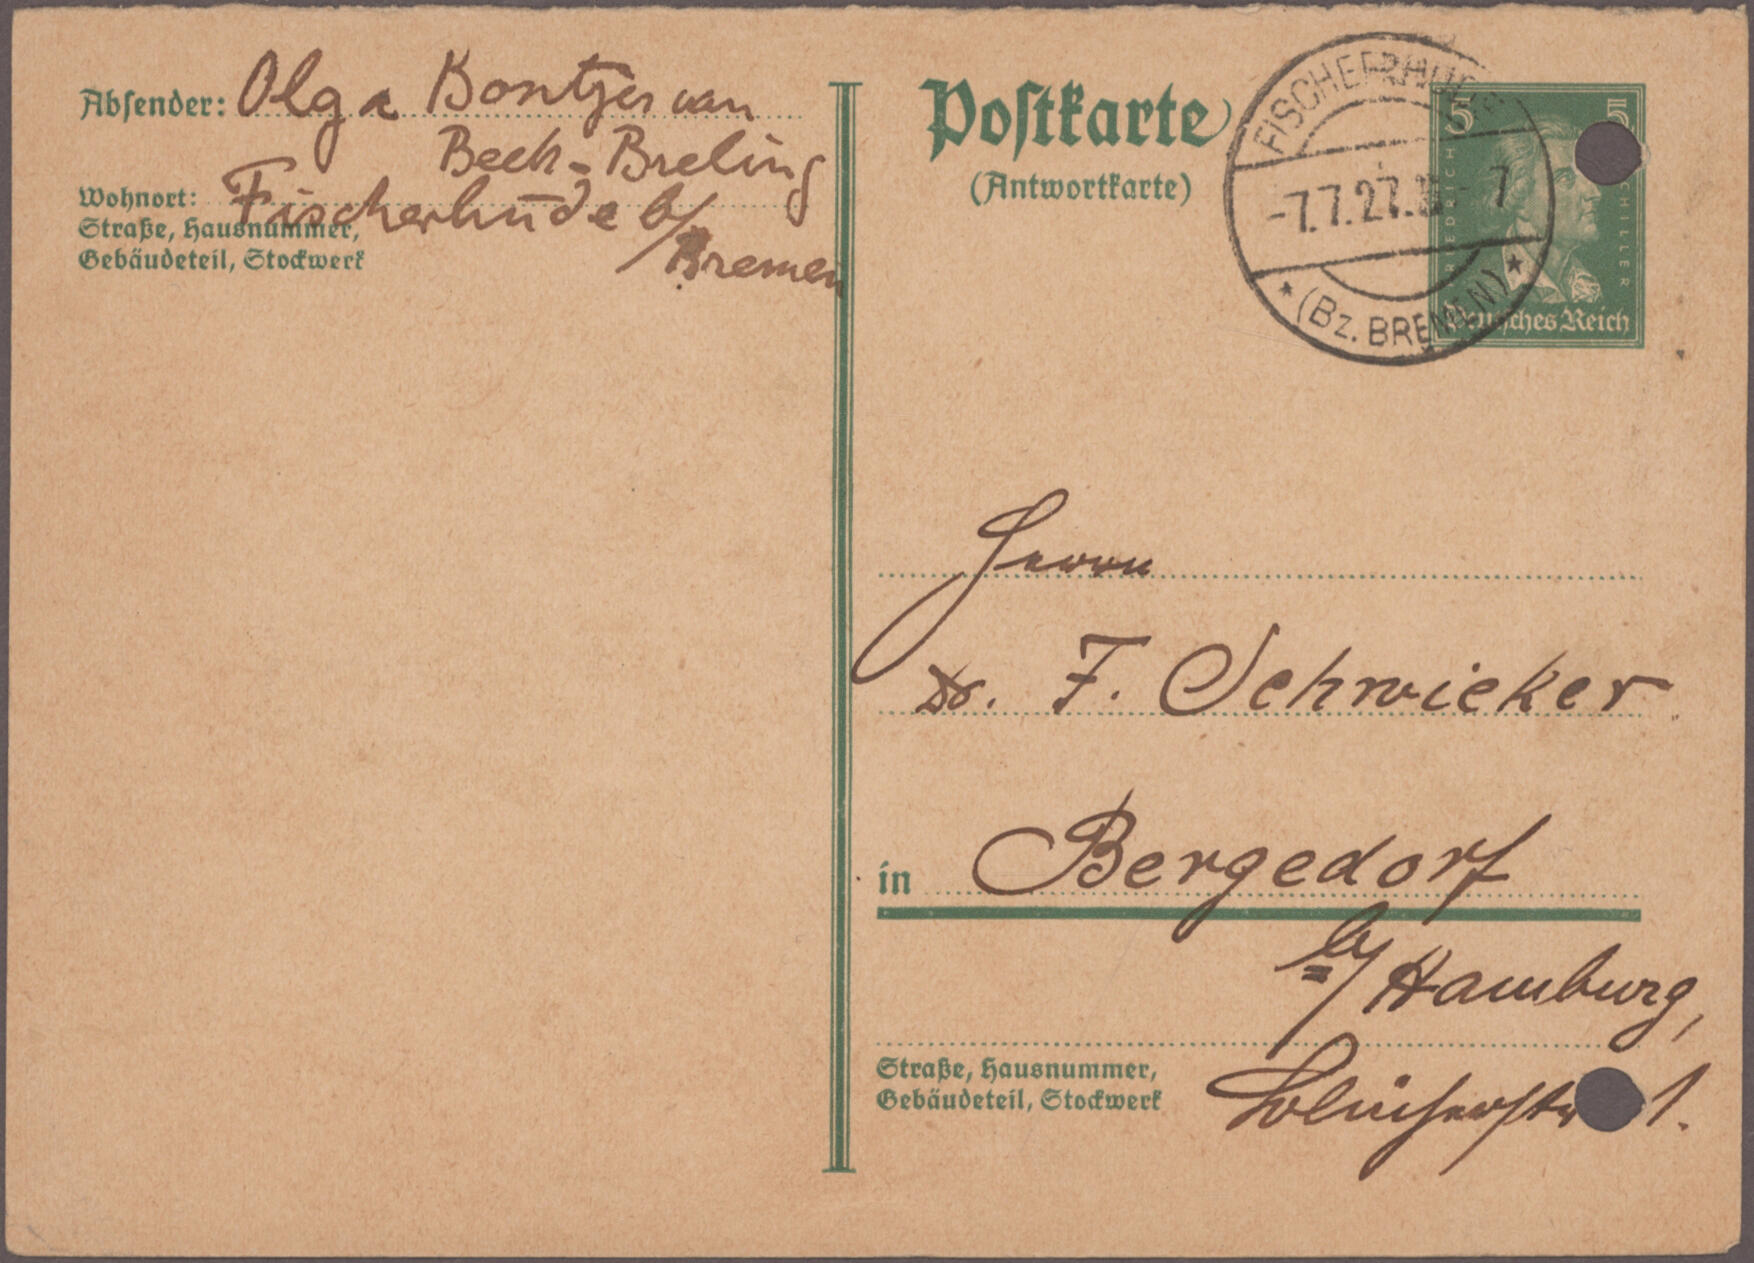 Absender: Olga Bontjes van
Beek-Breling
Wohnort: Fischerhude b/
Bremen
Straße, Hausnummer,
Gebäudeteil, Stockwerk
Postkarte
(Antwortkarte)
FISCHERHUDE
-7.7.27. 7
* (Bz. BREMEN) *
5 5
FRIEDRICH SCHILLER
Deutsches Reich
Herrn
Dr. F. Schwieker
in Bergedorf
b/Hamburg,
Straße, Hausnummer,
Gebäudeteil, Stockwerk
1.